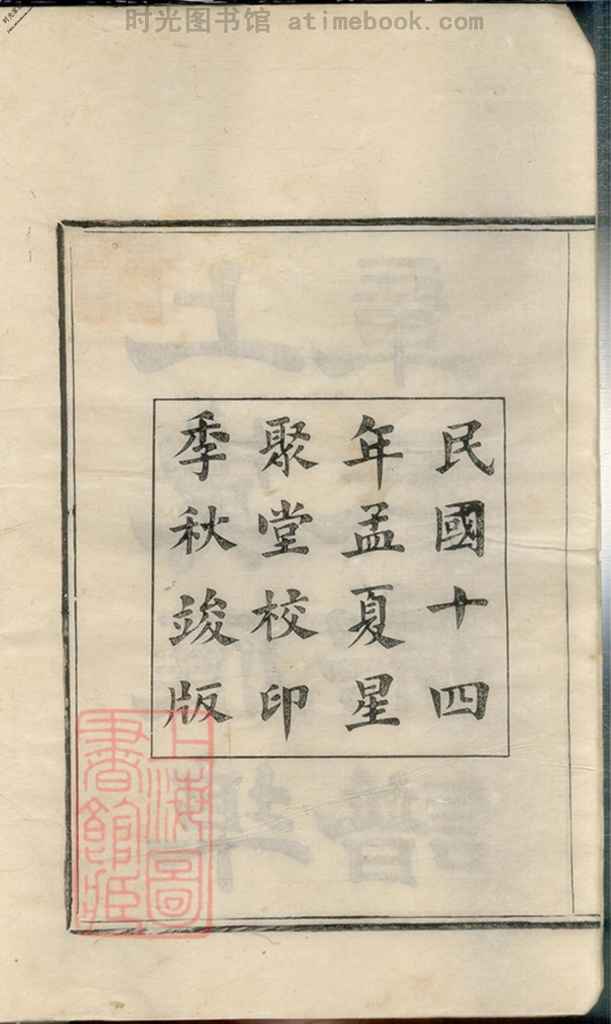 时光图书馆 atimebook.com
民國十四
年孟夏星
聚堂校印
季秋竣版
上海圖
書館藏